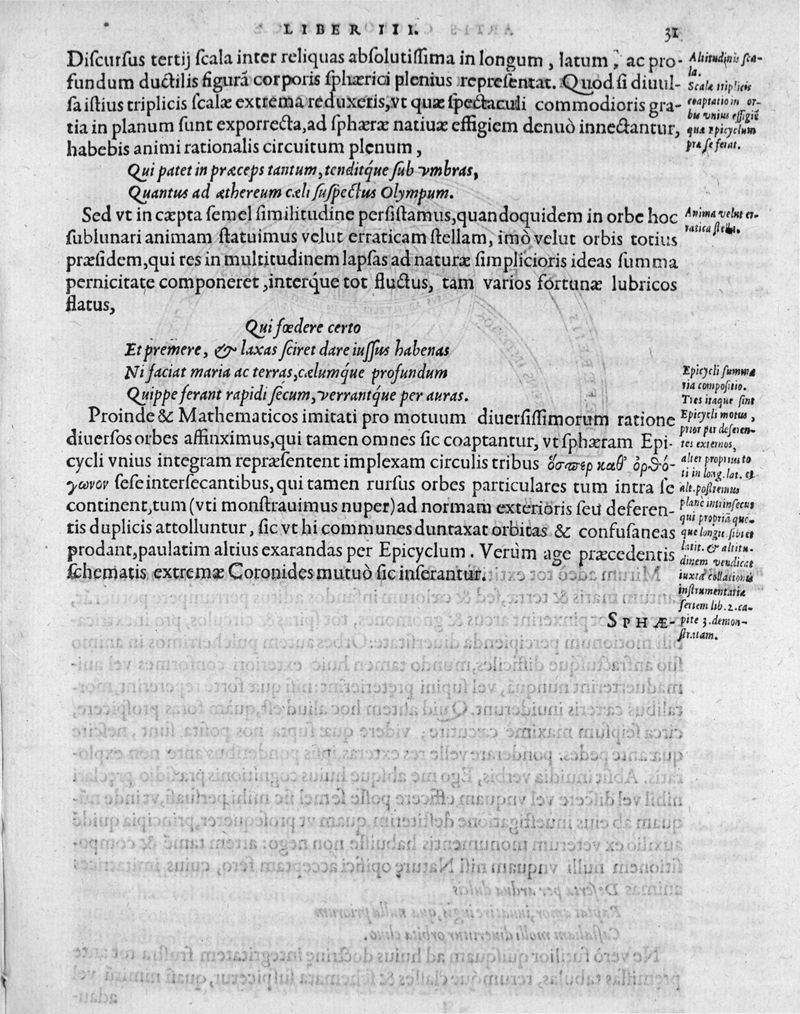 LIBER III.
31
Diſcurſus tertij ſcala inter reliquas abſolutiſſima in longum, latum, ac pro-
fundum ductilis figurã corporis ſphærici plenius repreſentat. Quod ſi diuul-
ſa iſtius triplicis ſcalæ extrema reduxeris, vt quæ ſpectaculi commodioris gra-
tia in planum ſunt exporrecta, ad ſphæræ natiuæ effigiem denuò innectantur,
habebis animi rationalis circuitum plenum,
Qui patet in præceps tantum, tenditq́ue ſub vmbras,
Quantus ad æthereum cæli ſuſpectus Olympum.
Sed vt in cæpta ſemel ſimilitudine perſiſtamus, quandoquidem in orbe hoc
ſublunari animam ſtatuimus velut erraticam ſtellam, imò velut orbis totius
præſidem, qui res in multitudinem lapſas ad naturæ ſimplicioris ideas ſumma
pernicitate componeret, interq́ue tot fluctus, tam varios fortunæ lubricos
flatus,
Qui fœdere certo
Et premere, & laxas ſciret dare iuſſus habenas
Ni faciat maria ac terras, cælumq́ue profundum
Quippe ferant rapidi ſecum, verrantq́ue per auras.
Proinde & Mathematicos imitati pro motuum diuerſiſſimorum ratione
diuerſos orbes affinximus, qui tamen omnes ſic coaptantur, vt ſphæram Epi-
cycli vnius integram repræſentent implexam circulis tribus ὅσπερ καθ' ὀρθό-
γωνον ſeſe interſecantibus, qui tamen rurſus orbes particulares tum intra ſe
continent, tum (vti monſtrauimus nuper) ad normam exterioris ſeu deferen-
tis duplicis attolluntur, ſic vt hi communes duntaxat orbitas & confuſaneas
prodant, paulatim altius exarandas per Epicyclum. Verùm age præcedentis
ſchematis extremæ Coronides mutuò ſic inſerantur.
SPHÆ-
Altitudinis ſca-
la.
Scalæ triplicis
coaptatio in or-
bis vnius effigiẽ
quæ Epicyclum
præ ſe ferat.
Anima velut er-
ratica ſtella.
Epicycli ſumma
ria compoſitio.
Tres itaque ſint
Epicycli motus,
prior per deferen-
tes externos,
alter proprius to
ti in long. lat. et
alt. poſtremus
planè intrinſecus
qui propriã quo-
que longit. ſibi et
latit. & altitu-
dinem vendicat
iuxta collationis
inſtrumentariæ
ſeriem lib. 2. ca-
pite 3. demon-
ſtratam.